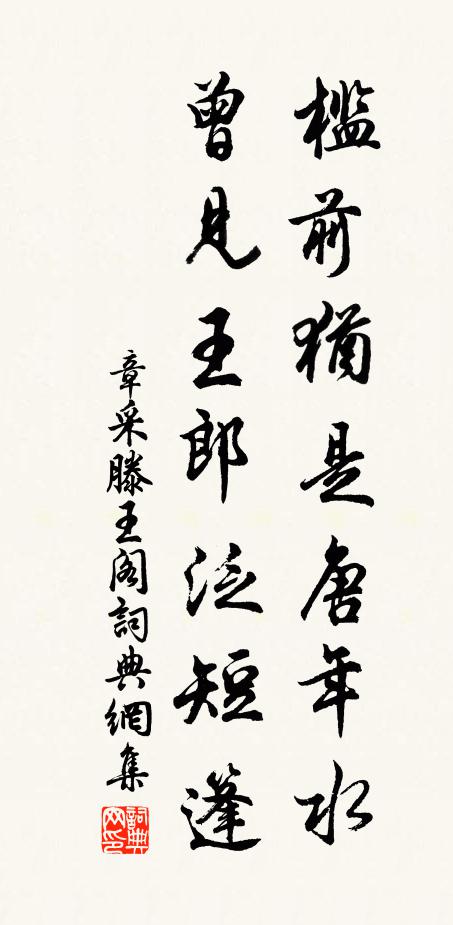 槛前猶是唐年水
曾見王郎泛短篷
章采滕王阁詞典網集
詞典網印